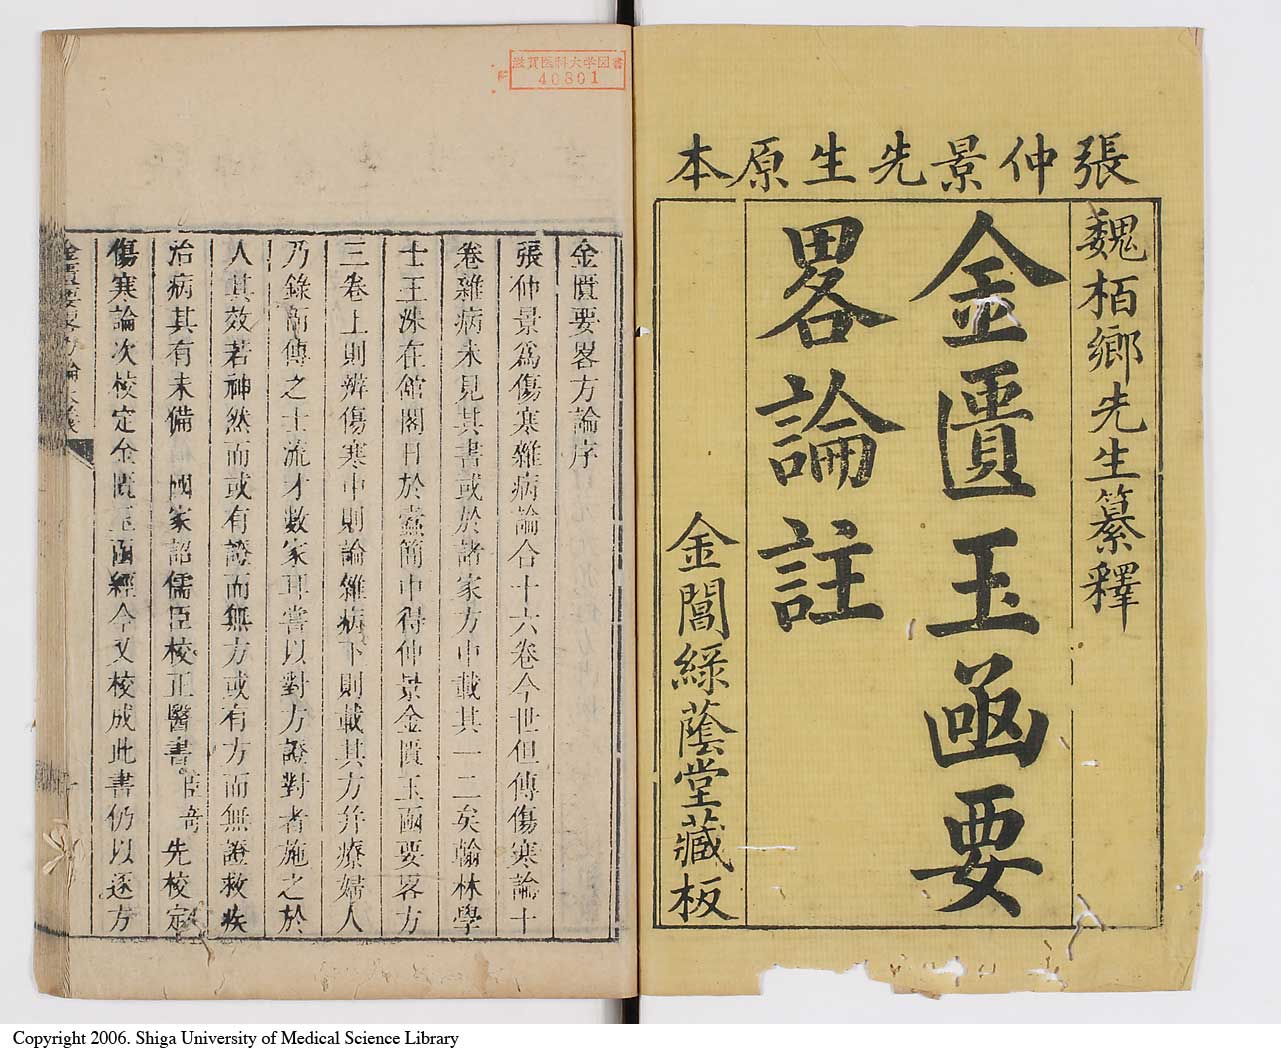 張仲景先生原本
魏栢鄉先生纂釋
金匱玉函要
畧論註
金閶綠蔭堂藏板
滋賀医科大学図書
40801
金匱要畧方論序
張仲景爲傷寒雜病論合十六卷今世但傳傷寒論十
卷雜病未見其書或於諸家方中載其一二矣翰林學
士王洙在館閣日於蠹簡中得仲景金匱玉函要畧方
三卷上則辨傷寒中則論雜病下則載其方幷療婦人
乃錄而傳之士流才數家耳嘗以對方證對者施之於
人其效若神然而或有證而無方或有方而無證救疾
治病其有未備 國家詔儒臣校正醫書臣奇先校定
傷寒論次校定金匱玉函經今又校成此書仍以逐方
Copyright 2006. Shiga University of Medical Science Library